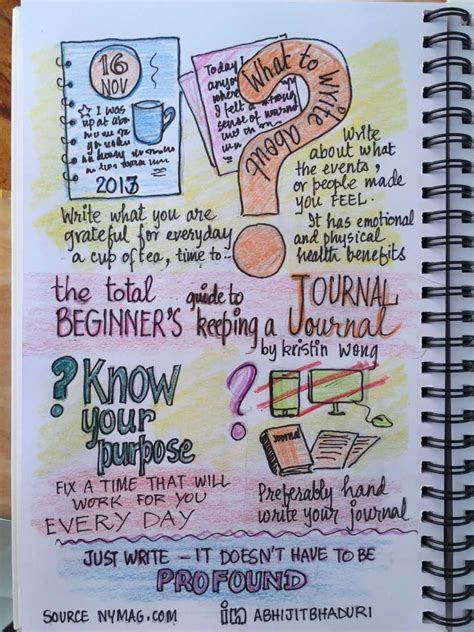 16
NOV
I was
up at
2013
Today I
What to Write about
I felt a strong
sense of
Write
about what
the events,
or people made
you FEEL.
It has emotional
and physical
health benefits
Write what you are
grateful for everyday
a cup of tea, time to--
the total
BEGINNER'S
guide to
keeping a
JOURNAL
Journal
by Kristin Wong
? Know
your
purpose
?
Journal
FIX A TIME THAT WILL
WORK FOR YOU
EVERY DAY
Preferably hand
write your journal
JUST WRITE – IT DOESN'T HAVE TO BE
PROFOUND
SOURCE NYMAG.COM
in ABHIJITBHADURI